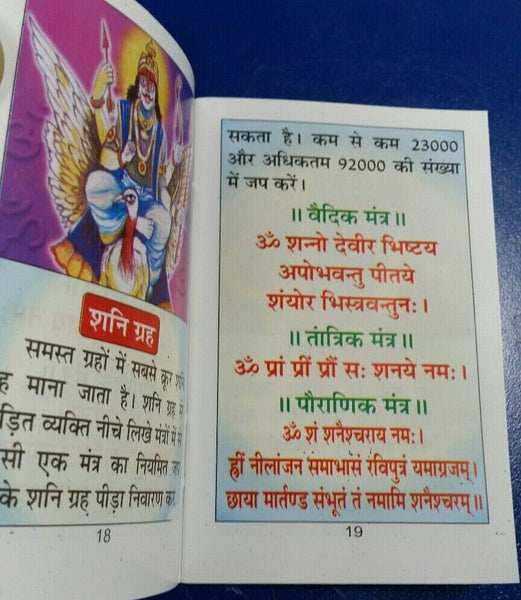 शनि ग्रह
समस्त ग्रहों में सबसे क्रूर
माना जाता है। शनि ग्रह
व्यक्ति नीचे लिखे मंत्रों में
एक मंत्र का नियमित जाप
के शनि ग्रह पीड़ा निवारण कर
18
सकता है। कम से कम 23000
और अधिकतम 92000 की संख्या
में जप करें।
॥ वैदिक मंत्र ॥
ॐ शन्नो देवीर भिष्टय
अपोभवन्तु पीतये
शंयोर भिस्त्रवन्तुनः।
॥ तांत्रिक मंत्र ॥
ॐ प्रां प्रीं प्रौं सः शनये नमः।
॥ पौराणिक मंत्र ॥
ॐ शं शनैश्चराय नमः।
ह्रीं नीलांजन समाभासं रविपुत्रं यमाग्रजम्।
छाया मार्तण्ड संभूतं तं नमामि शनैश्चरम्॥
19